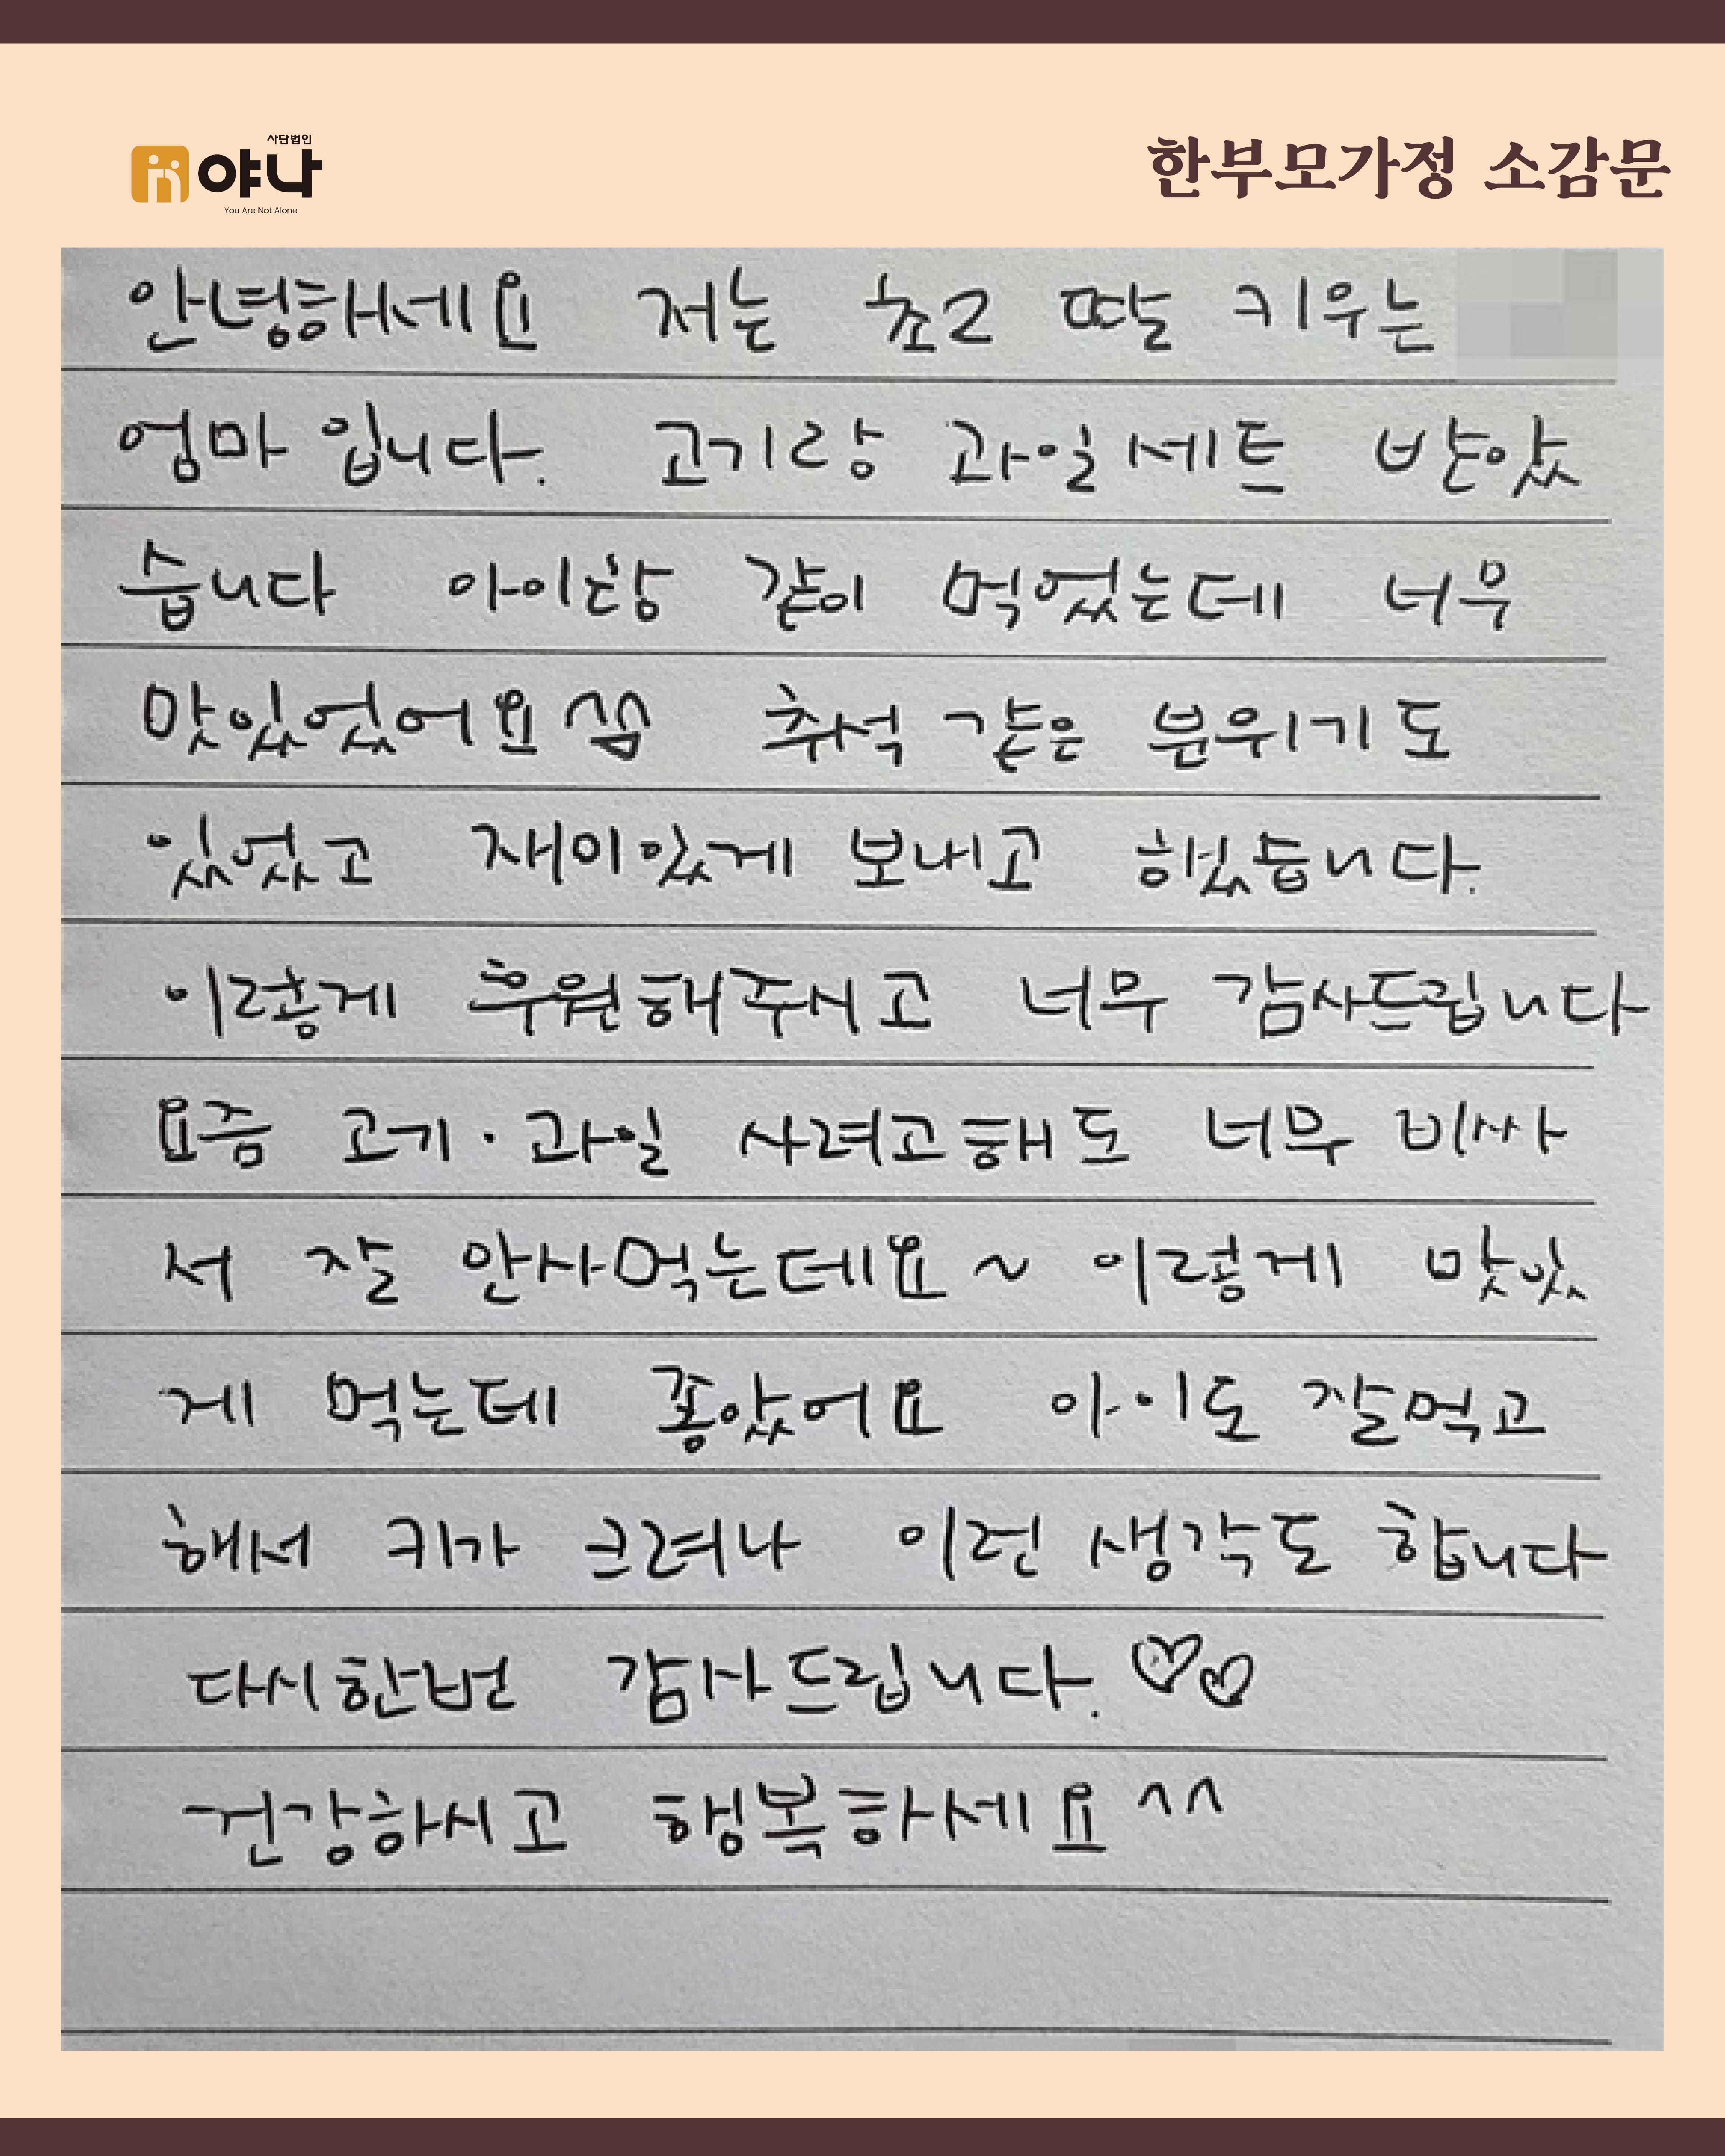 사단법인
야나
You Are Not Alone
한부모가정 소감문
안녕하세요 저는 초2 딸 키우는
엄마 입니다. 고기랑 과일세트 받았
습니다 아이랑 같이 먹었는데 너무
맛있었어요 추석 같은 분위기도
있었고 재미있게 보내고 했습니다.
이렇게 후원해주시고 너무 감사드립니다
요즘 고기·과일 사려고해도 너무 비싸
서 잘 안사먹는데요~ 이렇게 맛있
게 먹는데 좋았어요 아이도 잘먹고
해서 키가 크려나 이런 생각도 합니다
다시한번 감사드립니다. ♡♡
건강하시고 행복하세요^^